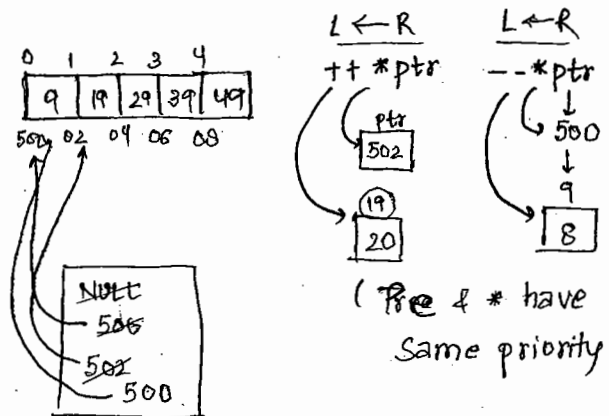 0 1 2 3 4
9 19 29 39 49
500 02 04 06 08
NULL
500
502
500
L ← R
++ *ptr
ptr
502
19
20
L ← R
-- *ptr
↓
500
↓
9
8
( Pre & * have
same priority